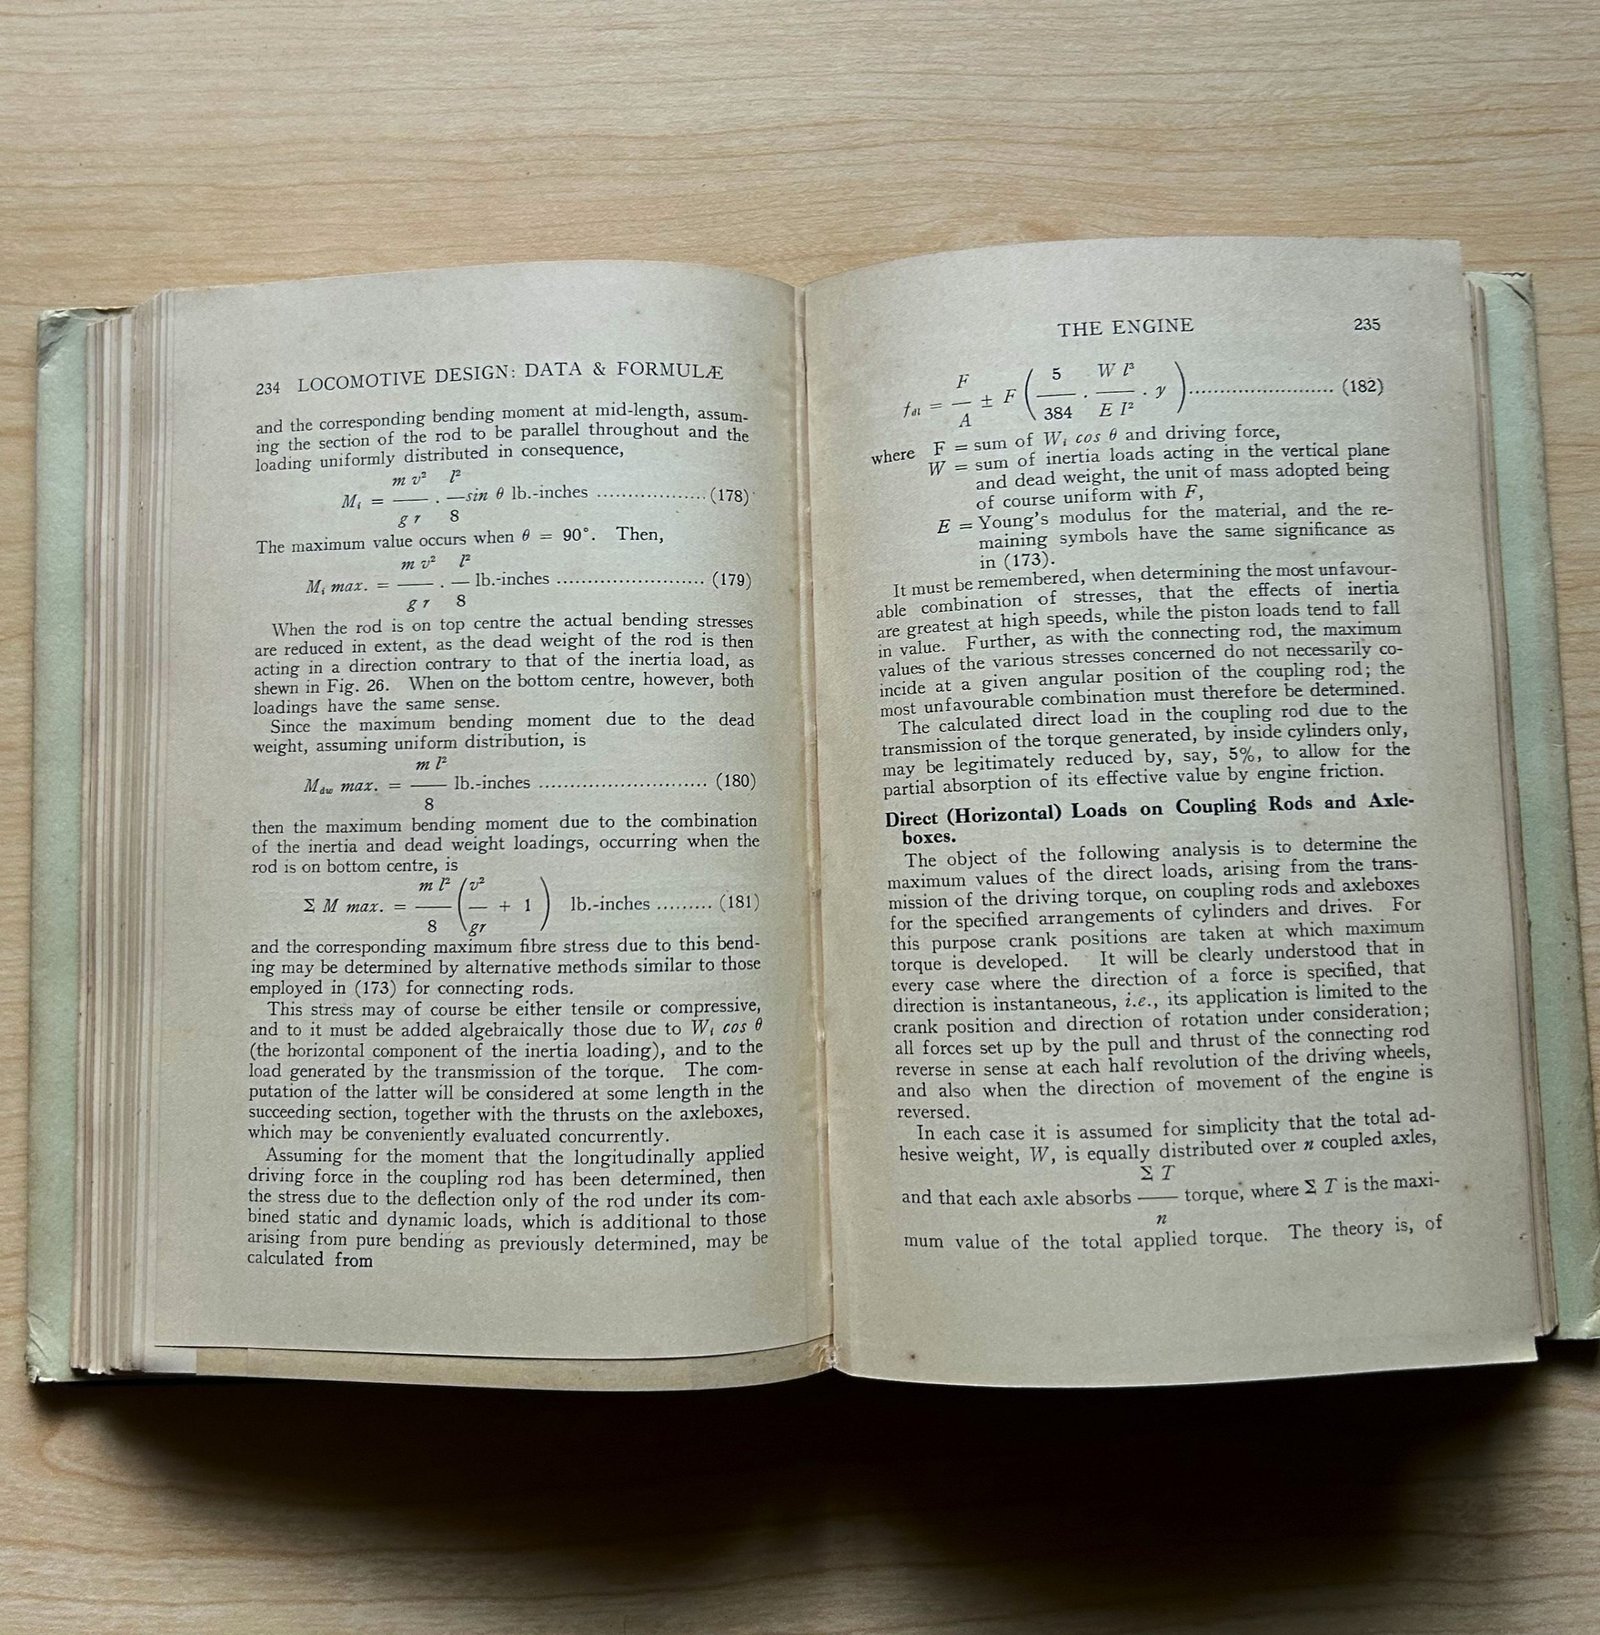 234 LOCOMOTIVE DESIGN: DATA & FORMULÆ
and the corresponding bending moment at mid-length, assum-
ing the section of the rod to be parallel throughout and the
loading uniformly distributed in consequence,
m v² l²
Mᵢ = —— . —sin θ lb.-inches .................. (178)
g r 8
The maximum value occurs when θ = 90°. Then,
m v² l²
Mᵢ max. = —— . — lb.-inches ........................ (179)
g r 8
When the rod is on top centre the actual bending stresses
are reduced in extent, as the dead weight of the rod is then
acting in a direction contrary to that of the inertia load, as
shewn in Fig. 26. When on the bottom centre, however, both
loadings have the same sense.
Since the maximum bending moment due to the dead
weight, assuming uniform distribution, is
m l²
M_dw max. = —— lb.-inches ........................... (180)
8
then the maximum bending moment due to the combination
of the inertia and dead weight loadings, occurring when the
rod is on bottom centre, is
m l² ( v²
Σ M max. = —— ( — + 1 ) lb.-inches ......... (181)
8 gr
and the corresponding maximum fibre stress due to this bend-
ing may be determined by alternative methods similar to those
employed in (173) for connecting rods.
This stress may of course be either tensile or compressive,
and to it must be added algebraically those due to Wᵢ cos θ
(the horizontal component of the inertia loading), and to the
load generated by the transmission of the torque. The com-
putation of the latter will be considered at some length in the
succeeding section, together with the thrusts on the axleboxes,
which may be conveniently evaluated concurrently.
Assuming for the moment that the longitudinally applied
driving force in the coupling rod has been determined, then
the stress due to the deflection only of the rod under its com-
bined static and dynamic loads, which is additional to those
arising from pure bending as previously determined, may be
calculated from
THE ENGINE 235
F 5 W l³
f_dl = — ± F ( —— . —— . y ) ........................ (182)
A 384 E I²
where F = sum of Wᵢ cos θ and driving force,
W = sum of inertia loads acting in the vertical plane
and dead weight, the unit of mass adopted being
of course uniform with F,
E = Young's modulus for the material, and the re-
maining symbols have the same significance as
in (173).
It must be remembered, when determining the most unfavour-
able combination of stresses, that the effects of inertia
are greatest at high speeds, while the piston loads tend to fall
in value. Further, as with the connecting rod, the maximum
values of the various stresses concerned do not necessarily co-
incide at a given angular position of the coupling rod; the
most unfavourable combination must therefore be determined.
The calculated direct load in the coupling rod due to the
transmission of the torque generated, by inside cylinders only,
may be legitimately reduced by, say, 5%, to allow for the
partial absorption of its effective value by engine friction.
Direct (Horizontal) Loads on Coupling Rods and Axle-
boxes.
The object of the following analysis is to determine the
maximum values of the direct loads, arising from the trans-
mission of the driving torque, on coupling rods and axleboxes
for the specified arrangements of cylinders and drives. For
this purpose crank positions are taken at which maximum
torque is developed. It will be clearly understood that in
every case where the direction of a force is specified, that
direction is instantaneous, i.e., its application is limited to the
crank position and direction of rotation under consideration;
all forces set up by the pull and thrust of the connecting rod
reverse in sense at each half revolution of the driving wheels,
and also when the direction of movement of the engine is
reversed.
In each case it is assumed for simplicity that the total ad-
hesive weight, W, is equally distributed over n coupled axles,
Σ T
and that each axle absorbs —— torque, where Σ T is the maxi-
n
mum value of the total applied torque. The theory is, of